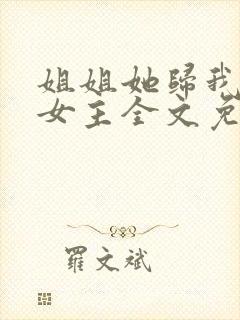 姐姐她歸我
女主全文免
羅文斌